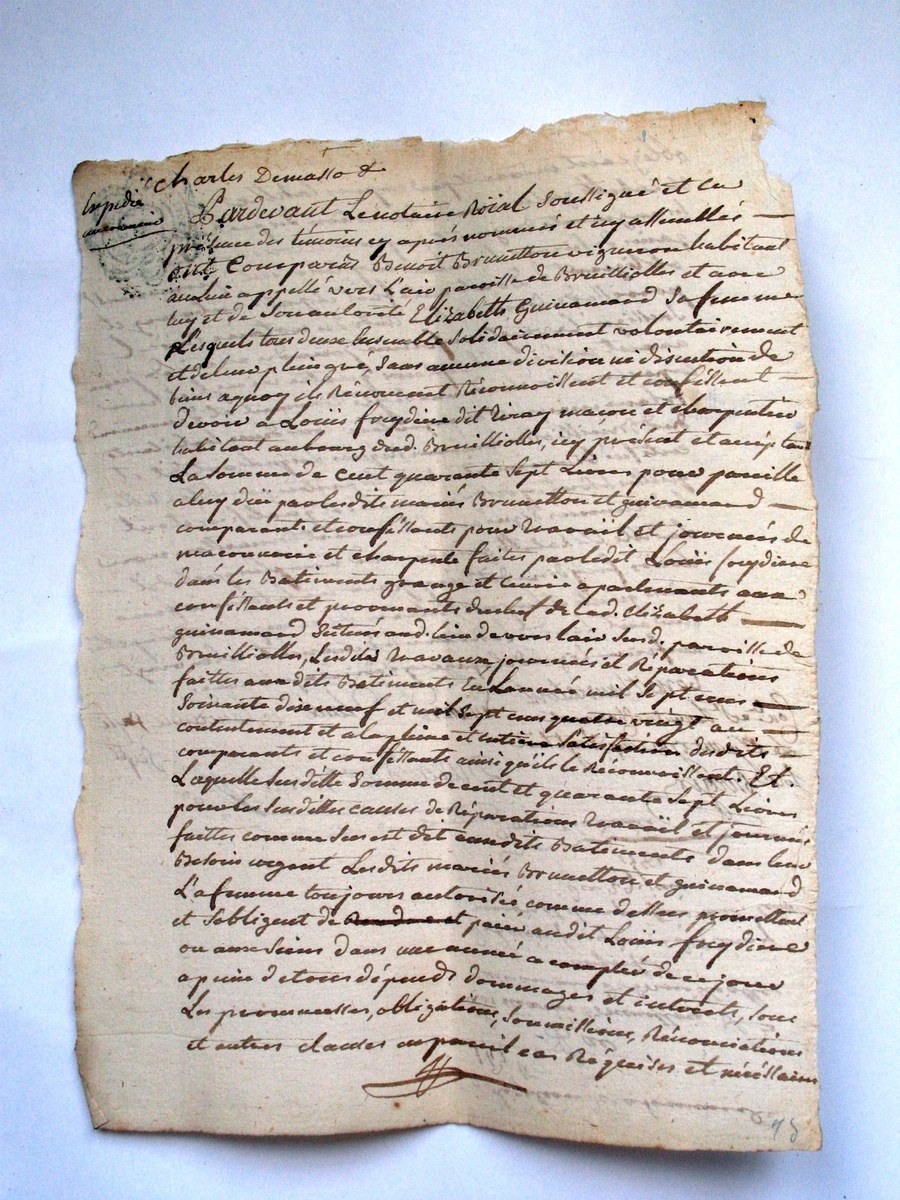 Charles Demasso &
Expedié
Pardevant Le notaire Roial Soussigné et en
présence des témoins cy après nommés et icy assemblés
ont Comparus Benoit Brunetton vigneron habitant
au lieu appellé vers L'air paroisse de Brullioles et avec
luy et de Son autorité Elizabeth Guinamand Sa femme
Lesquels tous deux Ensemble Solidairement volontairement
et de leur plein gré, Sans aucune division ni discution de
biens a quoy ils Rénoncent Réconnoissent et confessent
devoir a Loüis froydiere dit maçon et charpentier
habitant au bourg dud. Brullioles, icy présent et acceptant
La Somme de Cent quarante Sept Livres pour pareille
a luy düe par lesdits mariés Brunetton et guinamand
comparants et confessants pour travail et journées de
maconnerie et charpente faites par ledit Loüis froydiere
dans les Batiments grange et apartenants aux
confessants et provenants du chef de lad. Elizabeth
guinamand Situés aud. lieu de vers lair Susd. paroisse de
Brullioles, Lesdits travaux journées et Réparations
faittes auxdits Batiments En L'année mil Sept cens
Soixante dix neuf et mil Sept cens quatre vingt au
contentement et a la pleine et entiere Satisfaction desdits
comparants et confessants ainsi qu'ils le Réconnoissent. Et
Laquelle Susditte Somme de cent et quarante Sept Livres
pour les Susdittes causes de Réparations travail et journées
faittes comme Sus est dit auxdits Batiments dans leur
Besoin urgent Lesdits mariés Brunetton et guinamand
La femme toujours autorisée comme dessus promettent
et S'obligent de Rendre et païer audit Loüis froydiere
ou aux Siens dans une année a compter de ce jour
a peine de tous dépends dommages et interets, Sous
Les promesses, obligations, Soumissions, Rénonciations
et autres clauses en pareil cas Réquises et nécéssaires